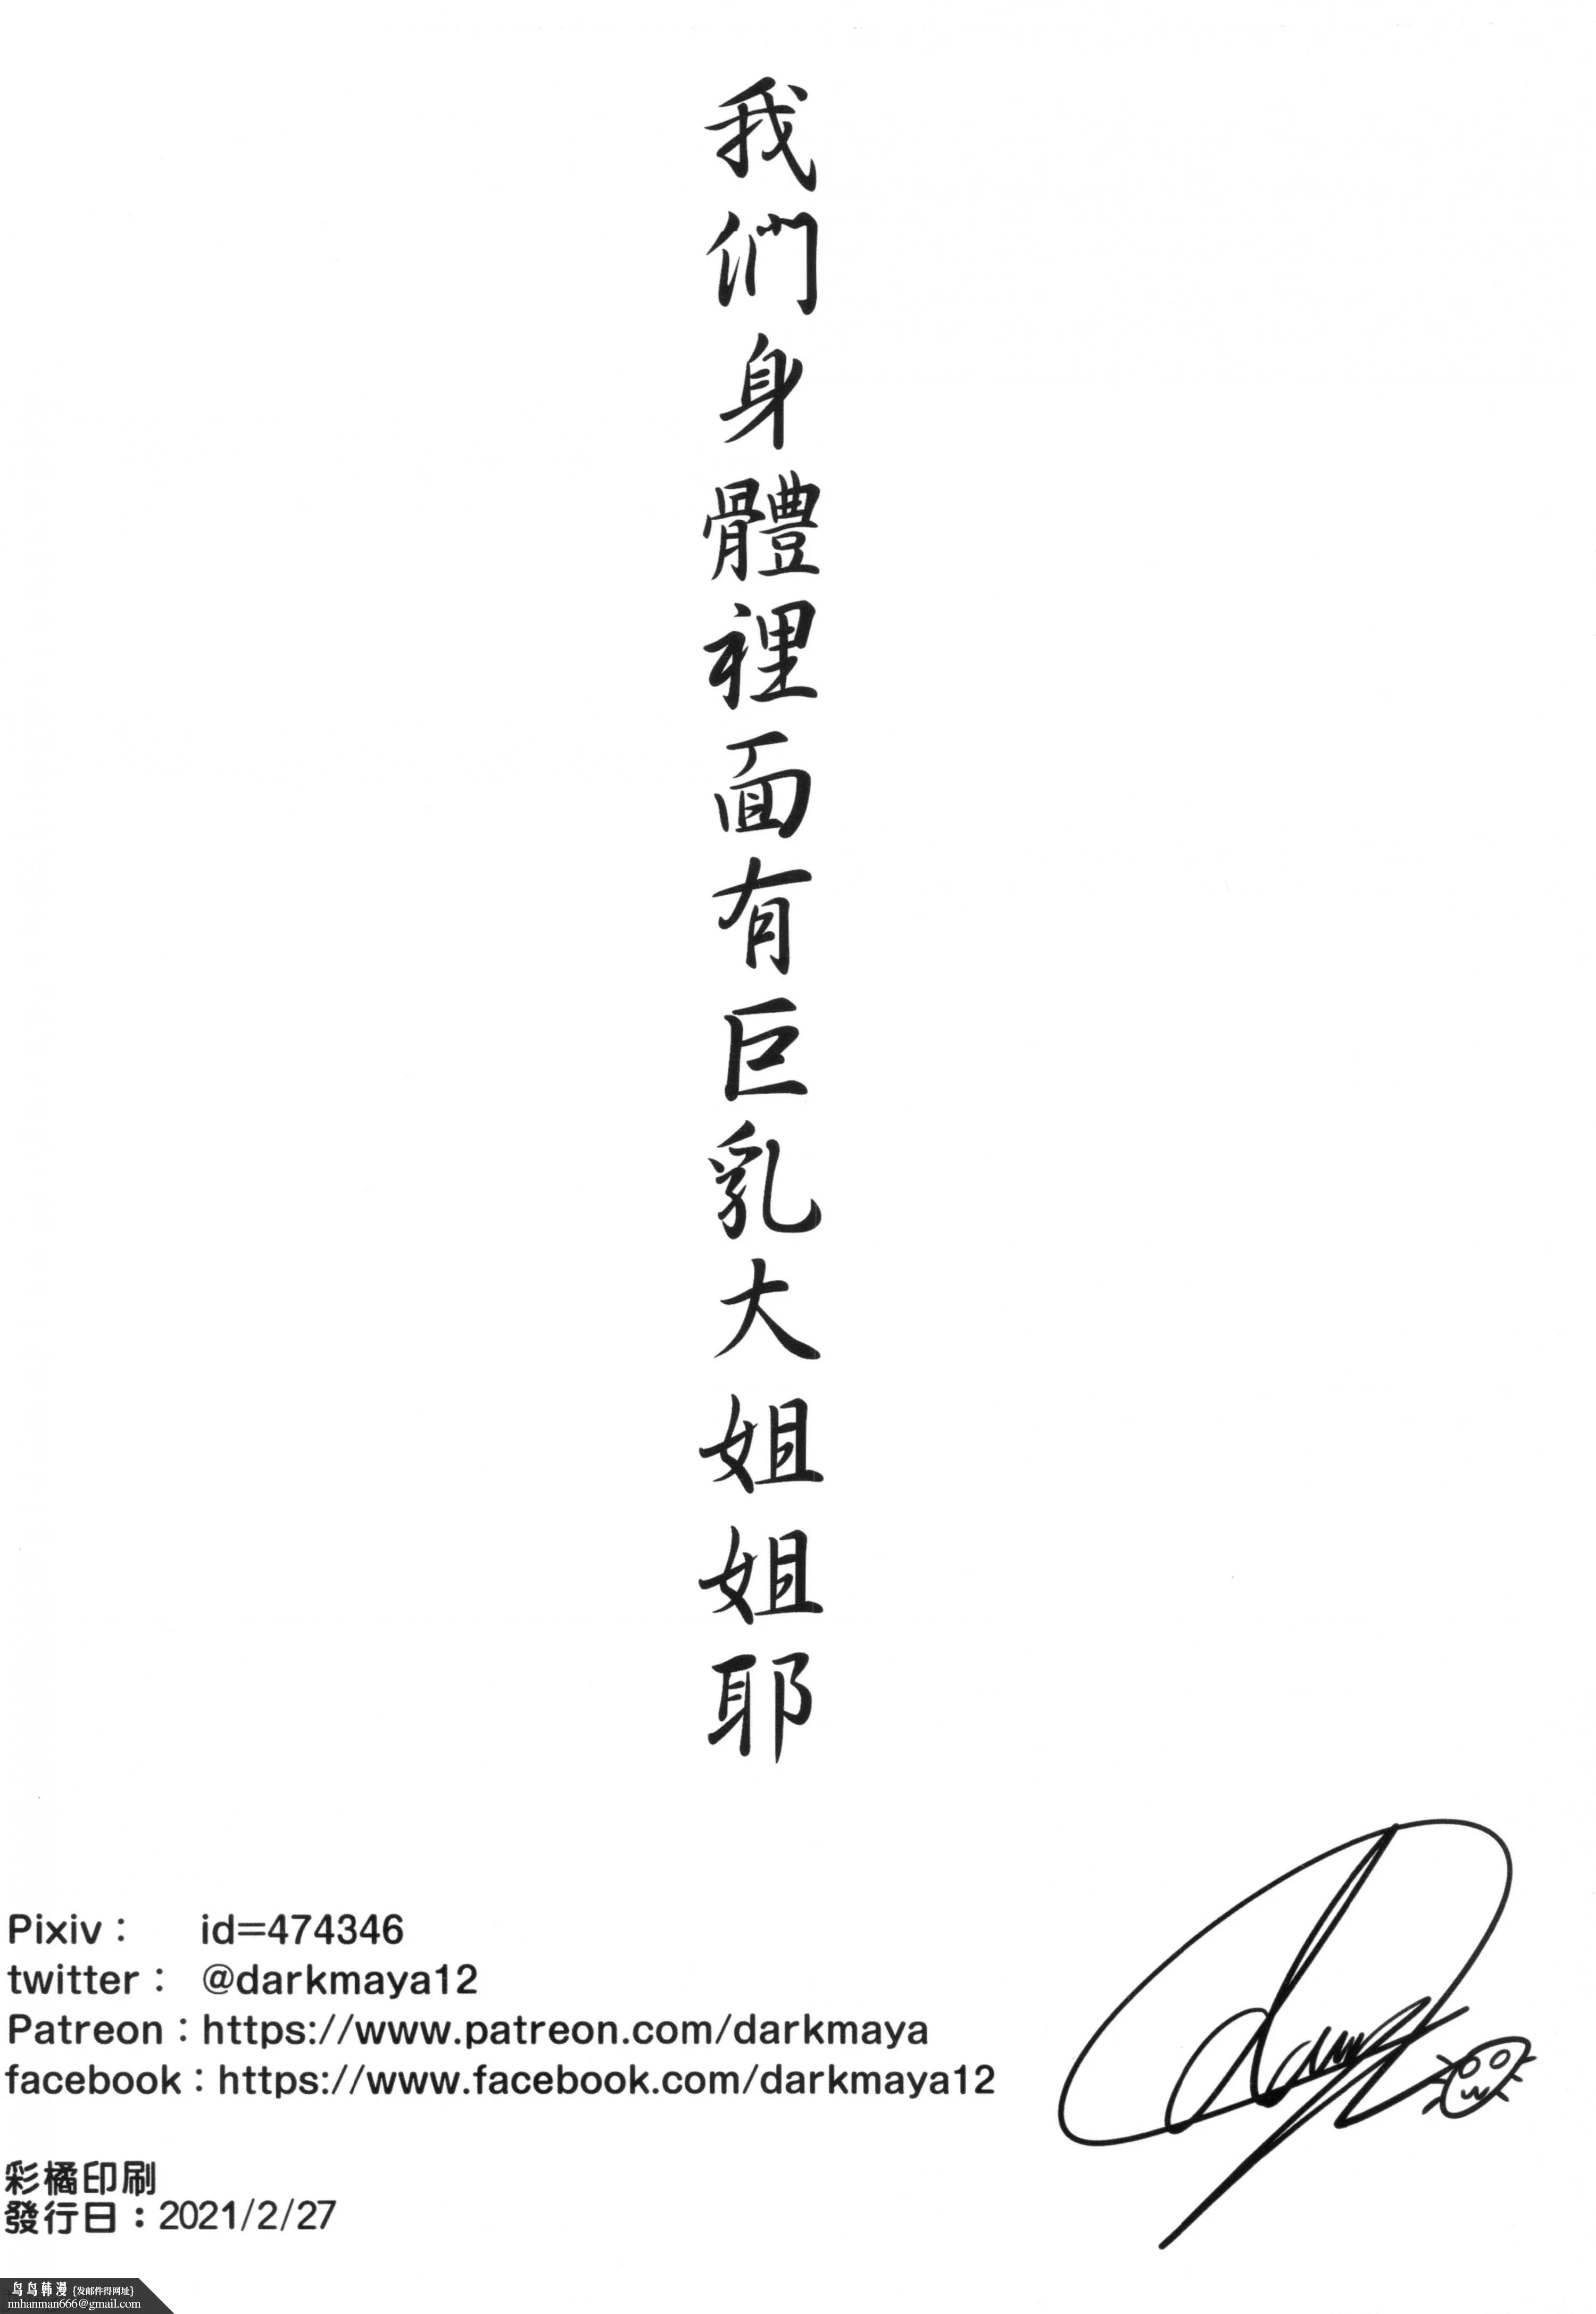 我們身體裡面有巨乳大姐姐耶
Pixiv： id=474346
twitter： @darkmaya12
Patreon：https://www.patreon.com/darkmaya
facebook：https://www.facebook.com/darkmaya12
彩橘印刷
發行日：2021/2/27
鸟鸟韩漫 {发邮件得网址}
nnhanman666@gmail.com